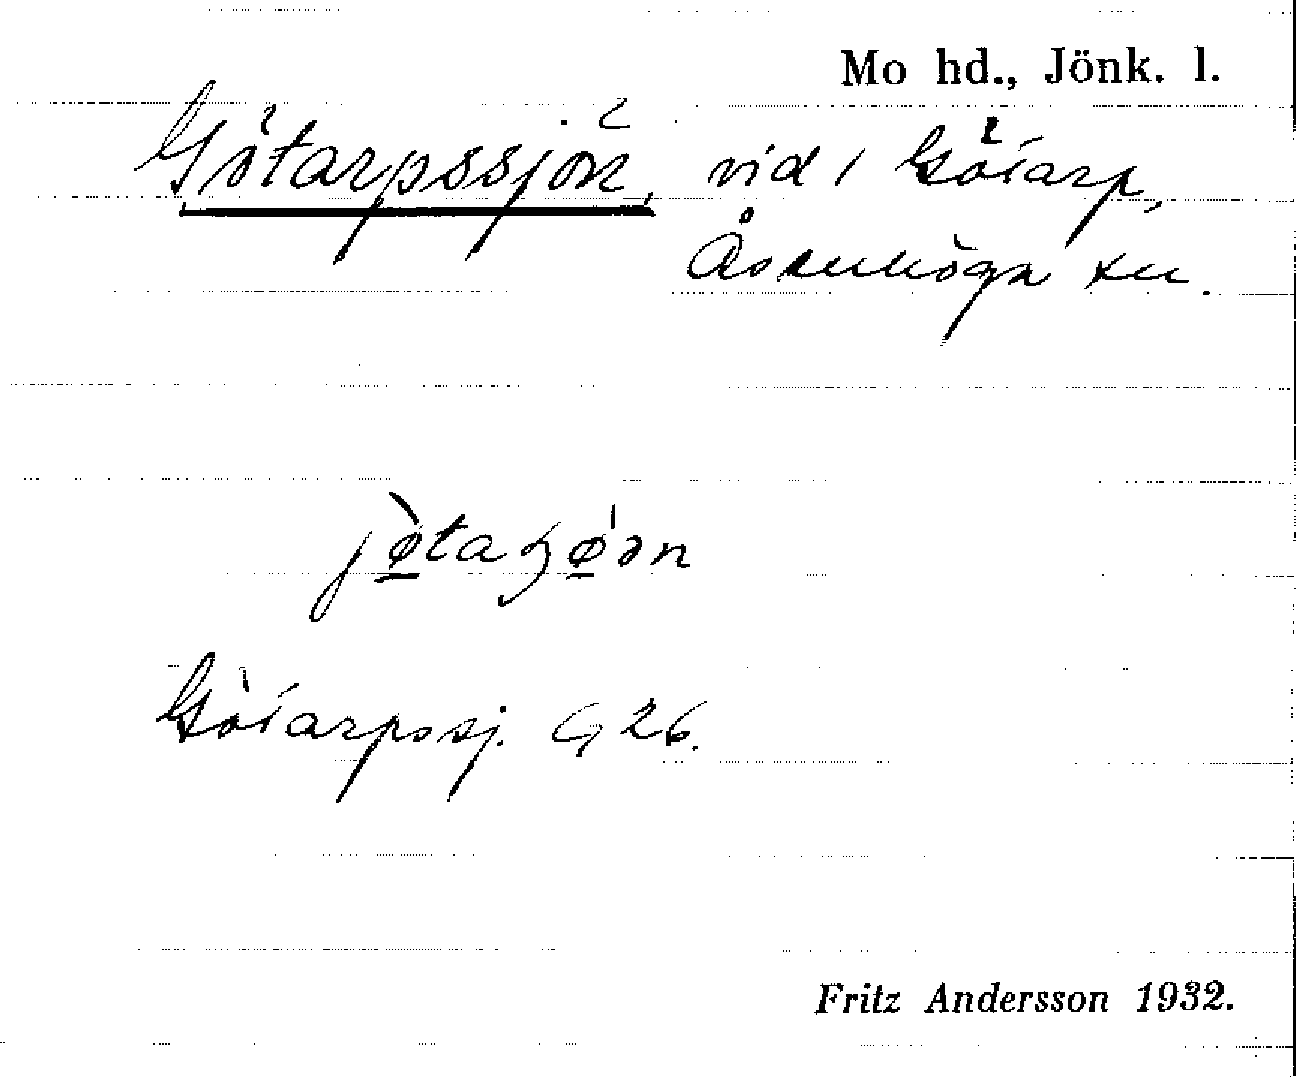 Mo hd., Jönk. l.
Götarpssjön, vid 1 Götarp,
Åsenhöga sn.
Götarpssj. G 26.
Fritz Andersson 1932.